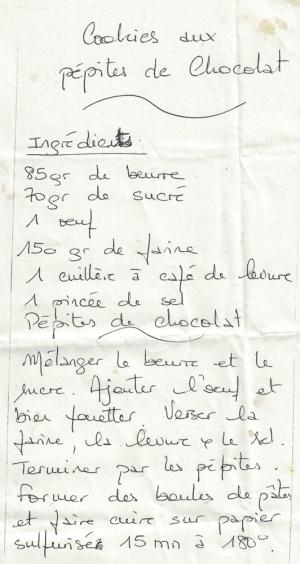 Cookies aux
pépites de Chocolat
Ingrédients :
85gr de beurre
70gr de sucre
1 oeuf
150 gr de farine
1 cuillère à café de levure
1 pincée de sel
Pépites de chocolat
Mélanger le beurre et le
sucre. Ajouter l'oeuf et
bien fouetter. Verser la
farine, la levure & le sel.
Terminer par les pépites.
Former des boules de pâtes
et faire cuire sur papier
sulfurisé 15 mn à 180°.